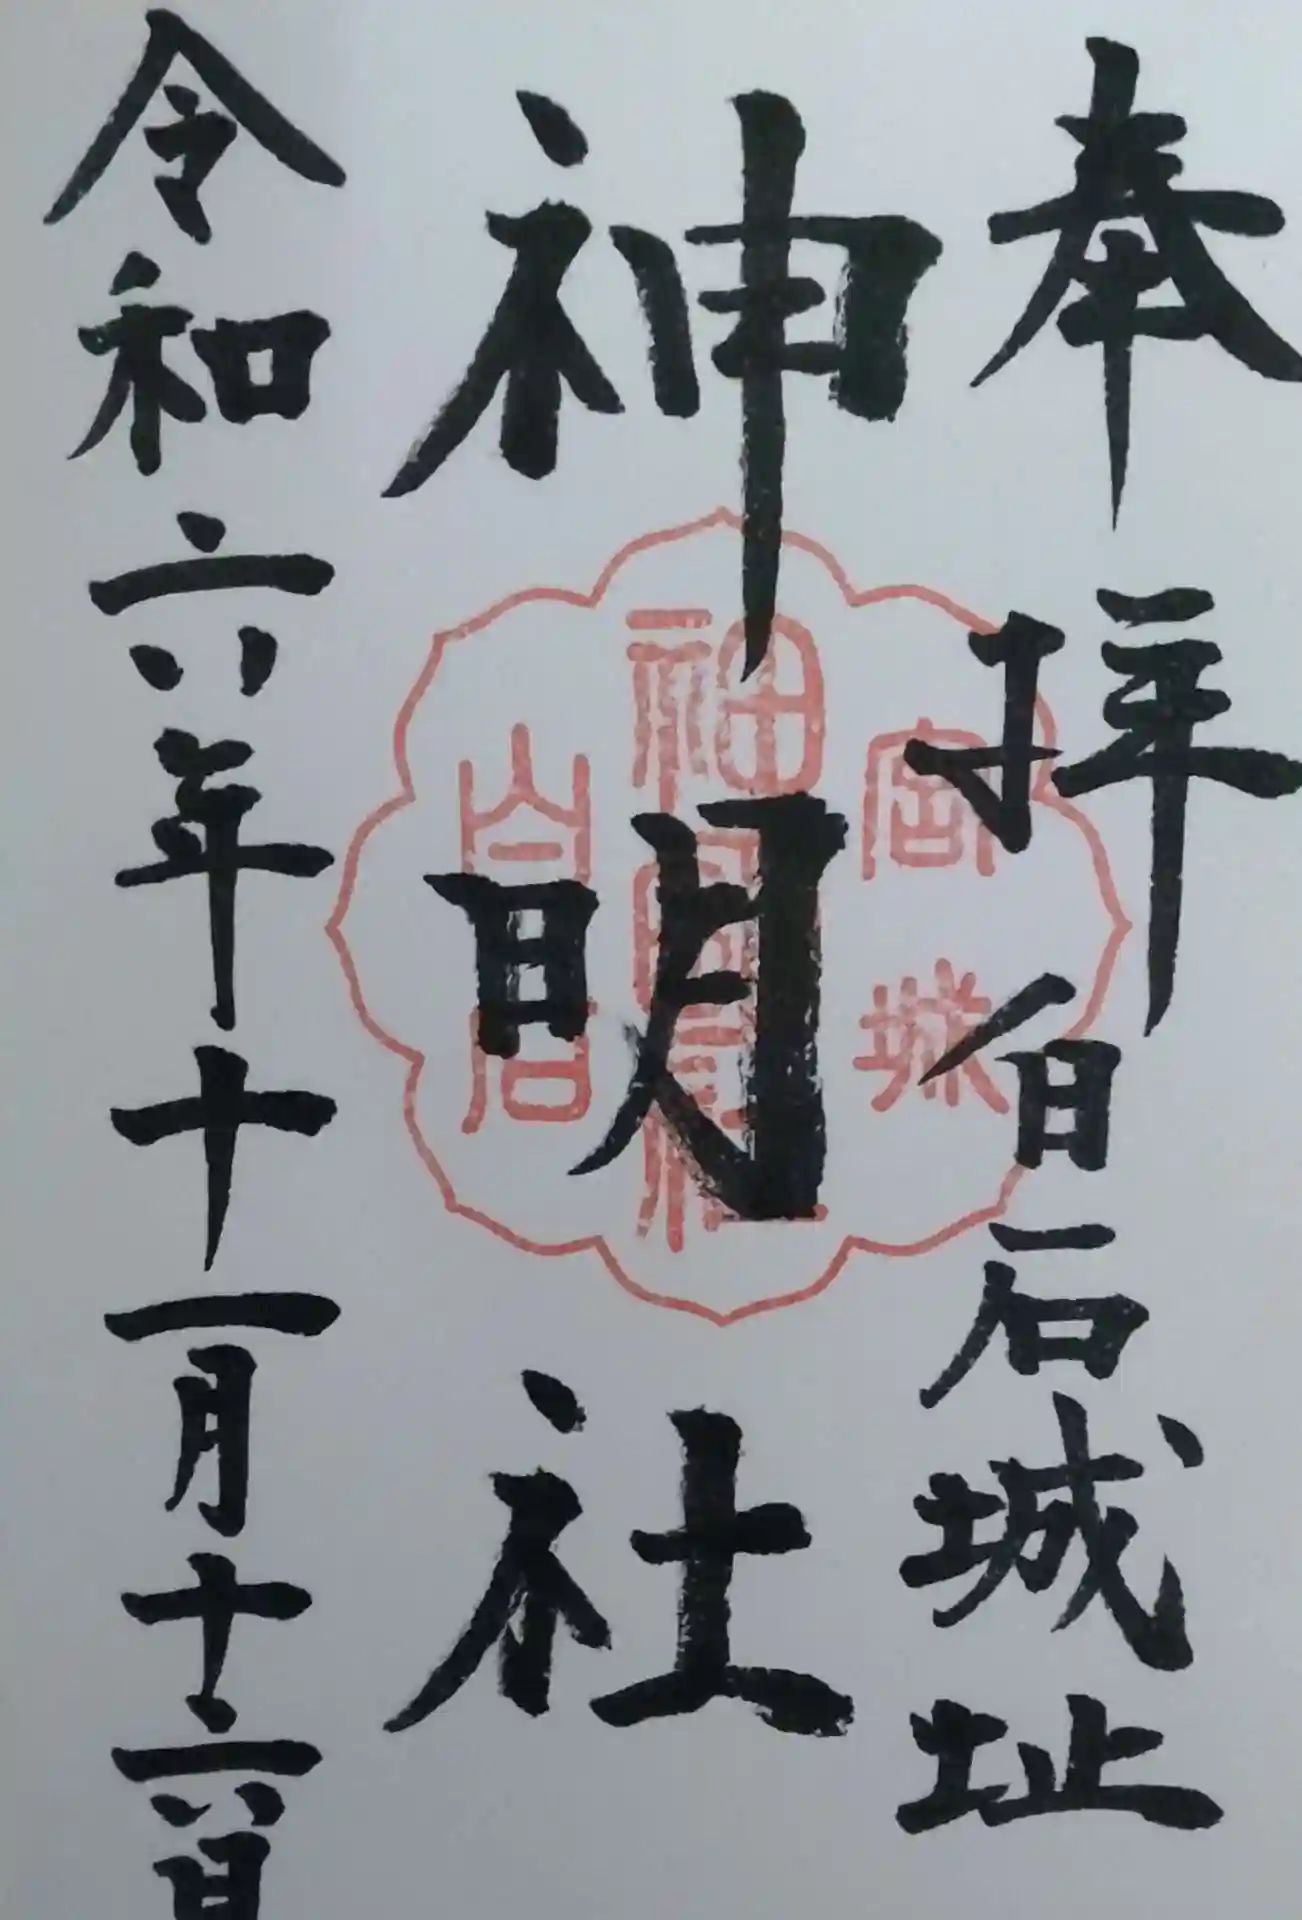 奉拝 白石城址
神明社
令和六年十一月十六日
神明社
宮城
白石